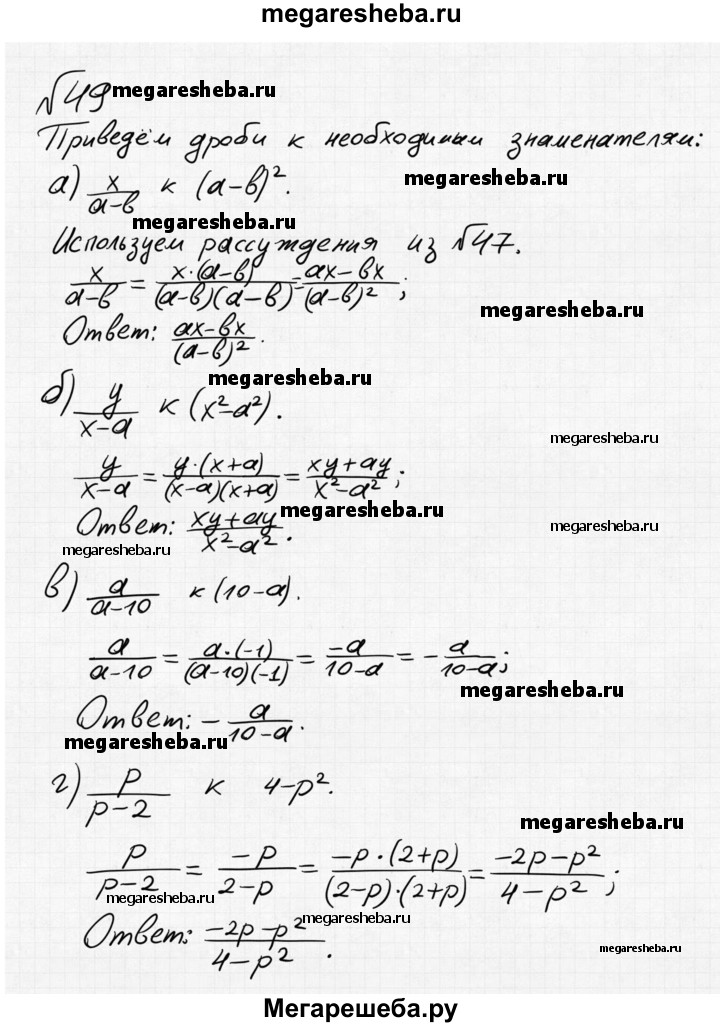 megaresheba.ru
№49 megaresheba.ru
Приведём дроби к необходимым знаменателям:
а) x/(a-b) к (a-b)². megaresheba.ru
megaresheba.ru
Используем рассуждения из №47.
x/(a-b) = x·(a-b)/((a-b)(a-b)) = (ax-bx)/(a-b)²;
megaresheba.ru
Ответ: (ax-bx)/(a-b)².
megaresheba.ru
б) y/(x-a) к (x²-a²).
megaresheba.ru
y/(x-a) = y·(x+a)/((x-a)(x+a)) = (xy+ay)/(x²-a²);
megaresheba.ru
Ответ: (xy+ay)/(x²-a²). megaresheba.ru
megaresheba.ru
в) a/(a-10) к (10-a).
a/(a-10) = a·(-1)/((a-10)(-1)) = -a/(10-a) = -a/(10-a);
megaresheba.ru
Ответ: -a/(10-a).
megaresheba.ru
г) p/(p-2) к 4-p².
megaresheba.ru
p/(p-2) = -p/(2-p) = -p·(2+p)/((2-p)·(2+p)) = (-2p-p²)/(4-p²);
megaresheba.ru
megaresheba.ru
Ответ: (-2p-p²)/(4-p²).
megaresheba.ru
Мегарешеба.ру